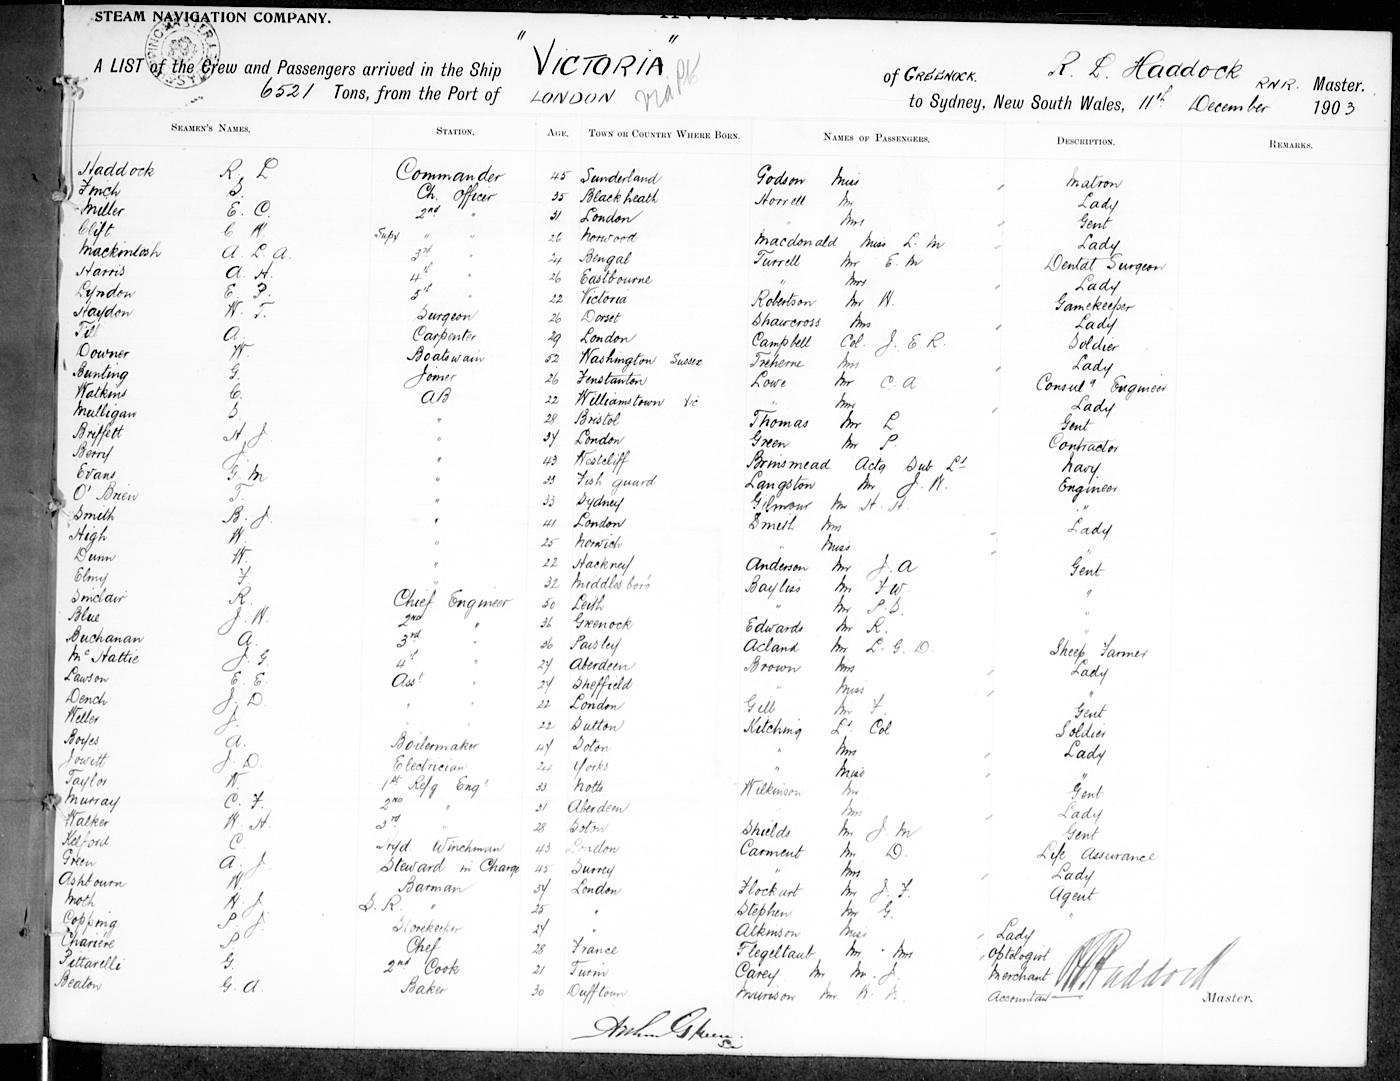 STEAM NAVIGATION COMPANY.
A LIST of the Crew and Passengers arrived in the Ship "VICTORIA" of GREENOCK. R. L. Haddock R.N.R. Master.
6521 Tons, from the Port of LONDON to Sydney, New South Wales, 11th December 1903
SEAMEN'S NAMES. STATION. AGE. TOWN OR COUNTRY WHERE BORN. NAMES OF PASSENGERS. DESCRIPTION. REMARKS.
Haddock R. L Commander 45 Sunderland Godson Miss Matron
Finch Ch. Officer 35 Blackheath Horrell Mr Lady
Miller E. C. 2nd " 31 London " Mrs Gent
Clift C W Supy " " 26 Norwood Macdonald Miss L. M Lady
Mackintosh A. L. A. 3rd " 24 Bengal Turrell Mr E. M Dental Surgeon
Harris A. H. 4th " 26 Eastbourne " Mrs Lady
Lyndon E. P. 5th " 22 Victoria Robertson Mr W. Gamekeeper
Hayden W. T. Surgeon 26 Dorset Shawcross Mrs Lady
Till A. Carpenter 29 London Campbell Col. J. E. R. Soldier
Downer W. Boatswain 52 Washington Sussex Treherne Mrs Lady
Bunting G. Joiner 26 Fenstanton Lowe Mr C. A Consulg Engineer
Watkins C. AB 22 Williamstown Vic " Mrs Lady
Mulligan " 28 Bristol Thomas Mr L Gent
Briffett H. J. " 34 London Green Mr P. Contractor
Berry J. " 43 Westcliff Brinsmead Actg Sub Lt Navy
Evans G. M " 33 Fishguard Langston Mr J. W. Engineer
O'Brien T. " 33 Sydney Gilmour Mr H. H. "
Smith B. J. " 41 London Smith Mrs Lady
High W. " 25 Norwich " Miss "
Dunn W. " 22 Hackney Anderson Mr J. A Gent
Elmy F. " 32 Middlesboro Bayliss Mr F. W. "
Sinclair R. Chief Engineer 50 Leith " Mr P. S. "
Blue J. W. 2nd " 36 Greenock Edwards Mr R. "
Buchanan A. 3rd " 26 Paisley Acland Mr L. G. D. Sheep Farmer
McHattie J. G. 4th " 24 Aberdeen Brown Mrs Lady
Lawson E. E. Asst " 24 Sheffield " Miss "
Dench J. D. " " 22 London Gill Mr F. Gent
Weller J. " " 22 Sutton Kitching Lt Col Soldier
Boyes A. Boilermaker 44 Soton " Mrs Lady
Jowitt J. D. Electrician 24 Yorks " Miss "
Taylor W. 1st Refg Engr 33 Notts Wilkinson Mr Gent
Murray C. F. 2nd " 31 Aberdeen " Mrs Lady
Walker W. H. 3rd " 28 Soton Shields Mr J. M Gent
Kelford C. Winchman 43 London Carment Mr D. Life Assurance
Green A. J. Steward in Charge 45 Surrey " Mrs Lady
Ashbourn W. Barman 34 London Flockart Mr J. F. Agent
Moth H. J. S. R. " 25 " Stephen Mr G. "
Copping P. J. Storekeeper 24 " Atkinson Miss Lady
Chariere P. Chef 28 France Flegeltaut Mr & Mrs Optologist
Pittarelli G. 2nd Cook 21 Turin Carey Mr M. J. Merchant
Beaton G. A. Baker 30 Dufftown Murison Mr Accountant
R L Haddock Master.